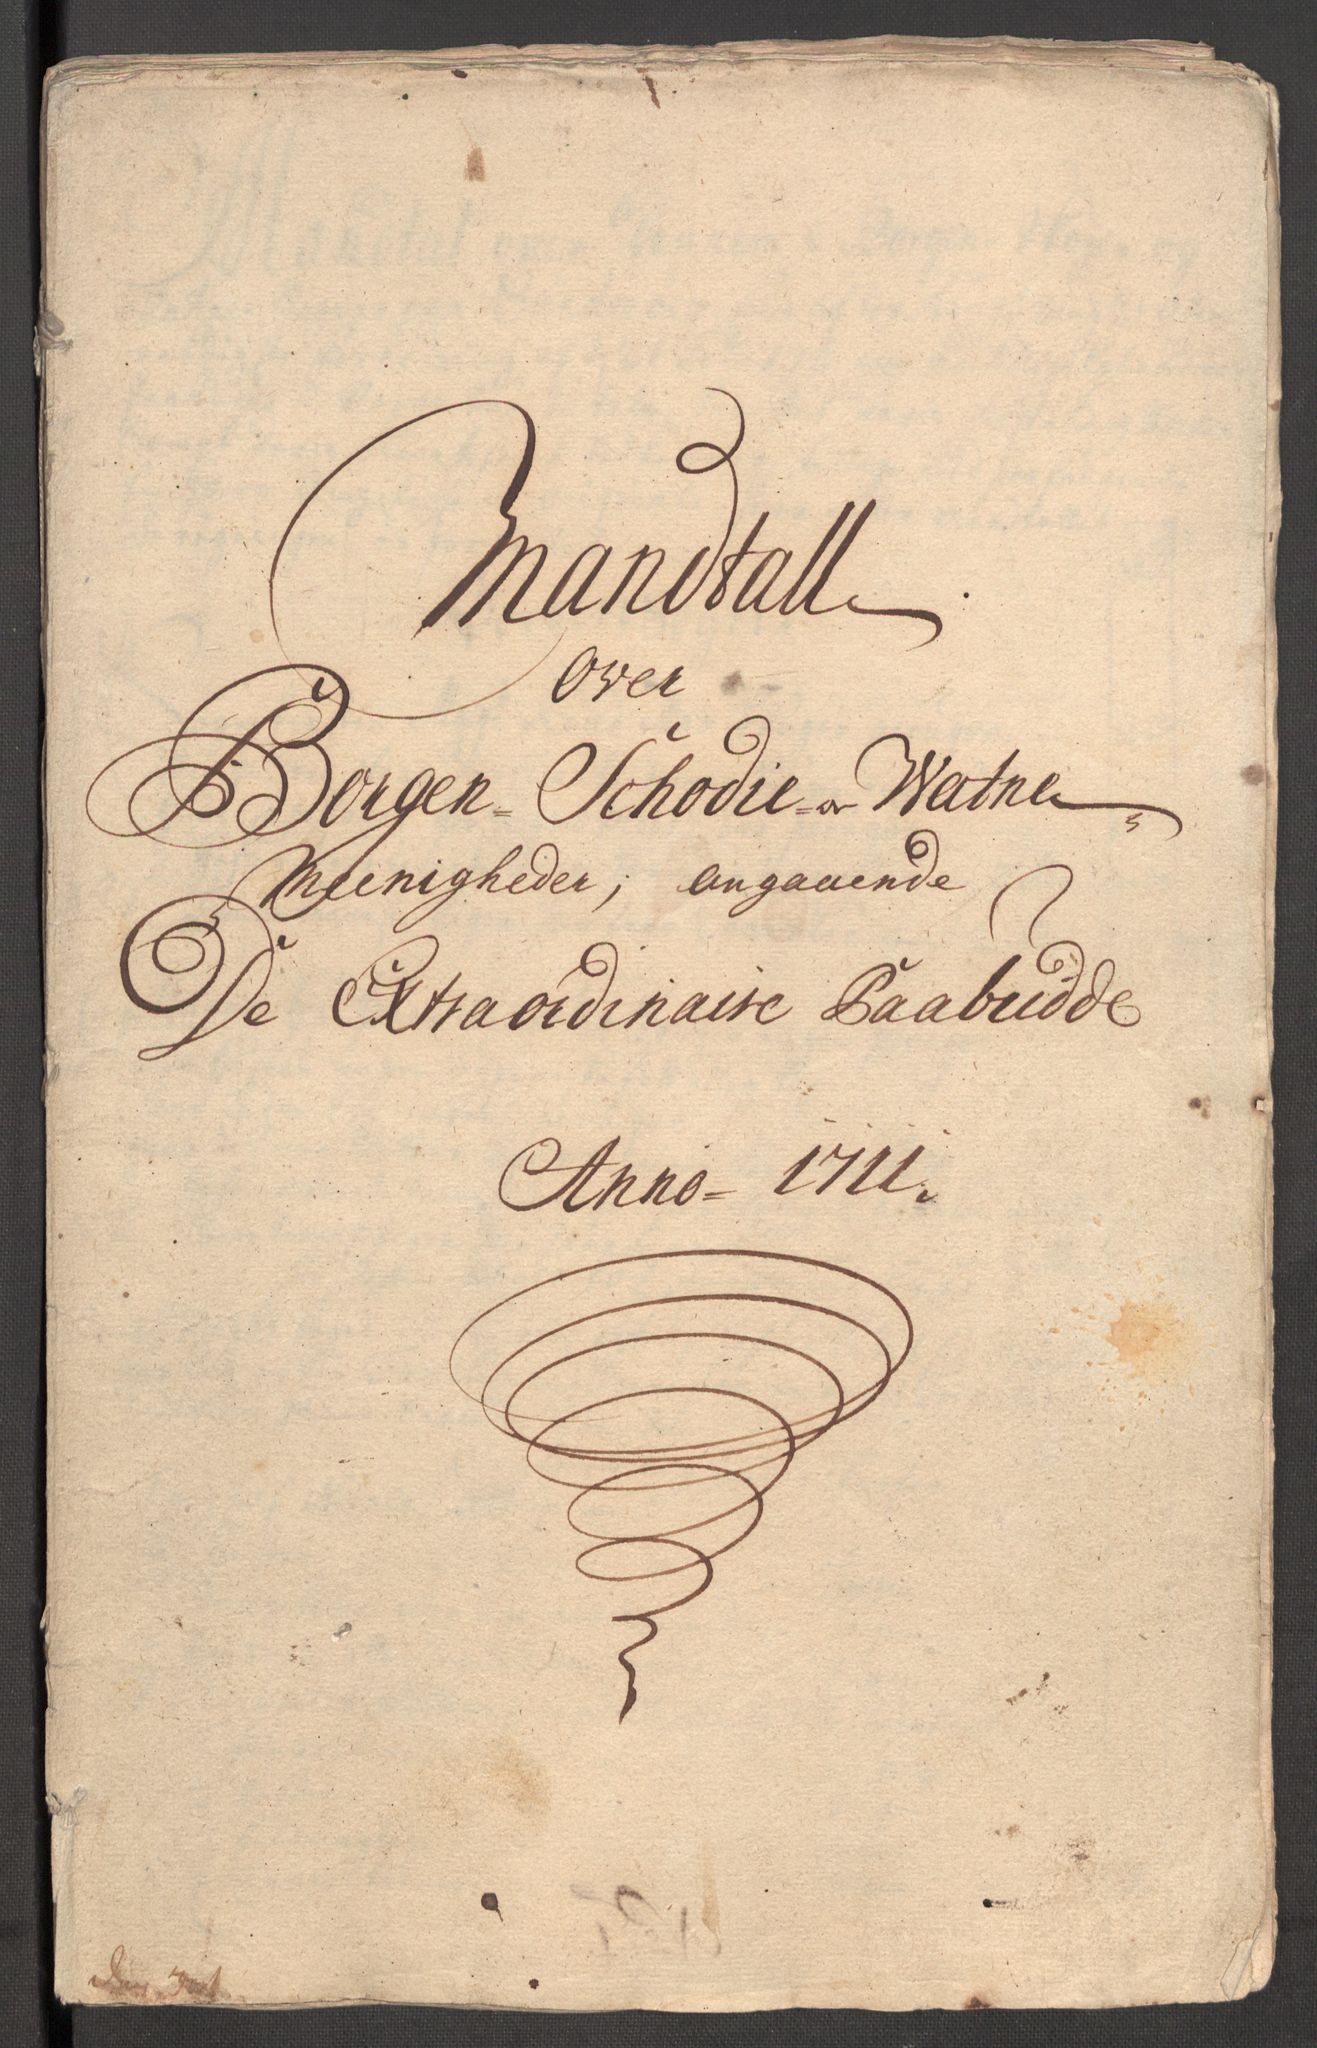 Mandtall
Over
Borgen= Schodie= og Watne
Meenigheder, angaaende
De Extraordinaire Paabudde
Anno= 1711.